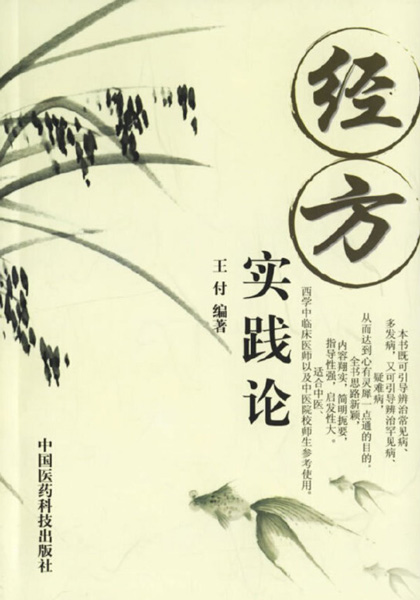 经方
实践论
王付 编著
本书既可引导辨治常见病、
多发病，又可引导辨治罕见病、
疑难病，
从而达到心有灵犀一点通的目的。
全书思路新颖，
内容翔实，简明扼要，
指导性强，启发性大。
适合中医、
西学中临床医师以及中医院校师生参考使用。
中国医药科技出版社